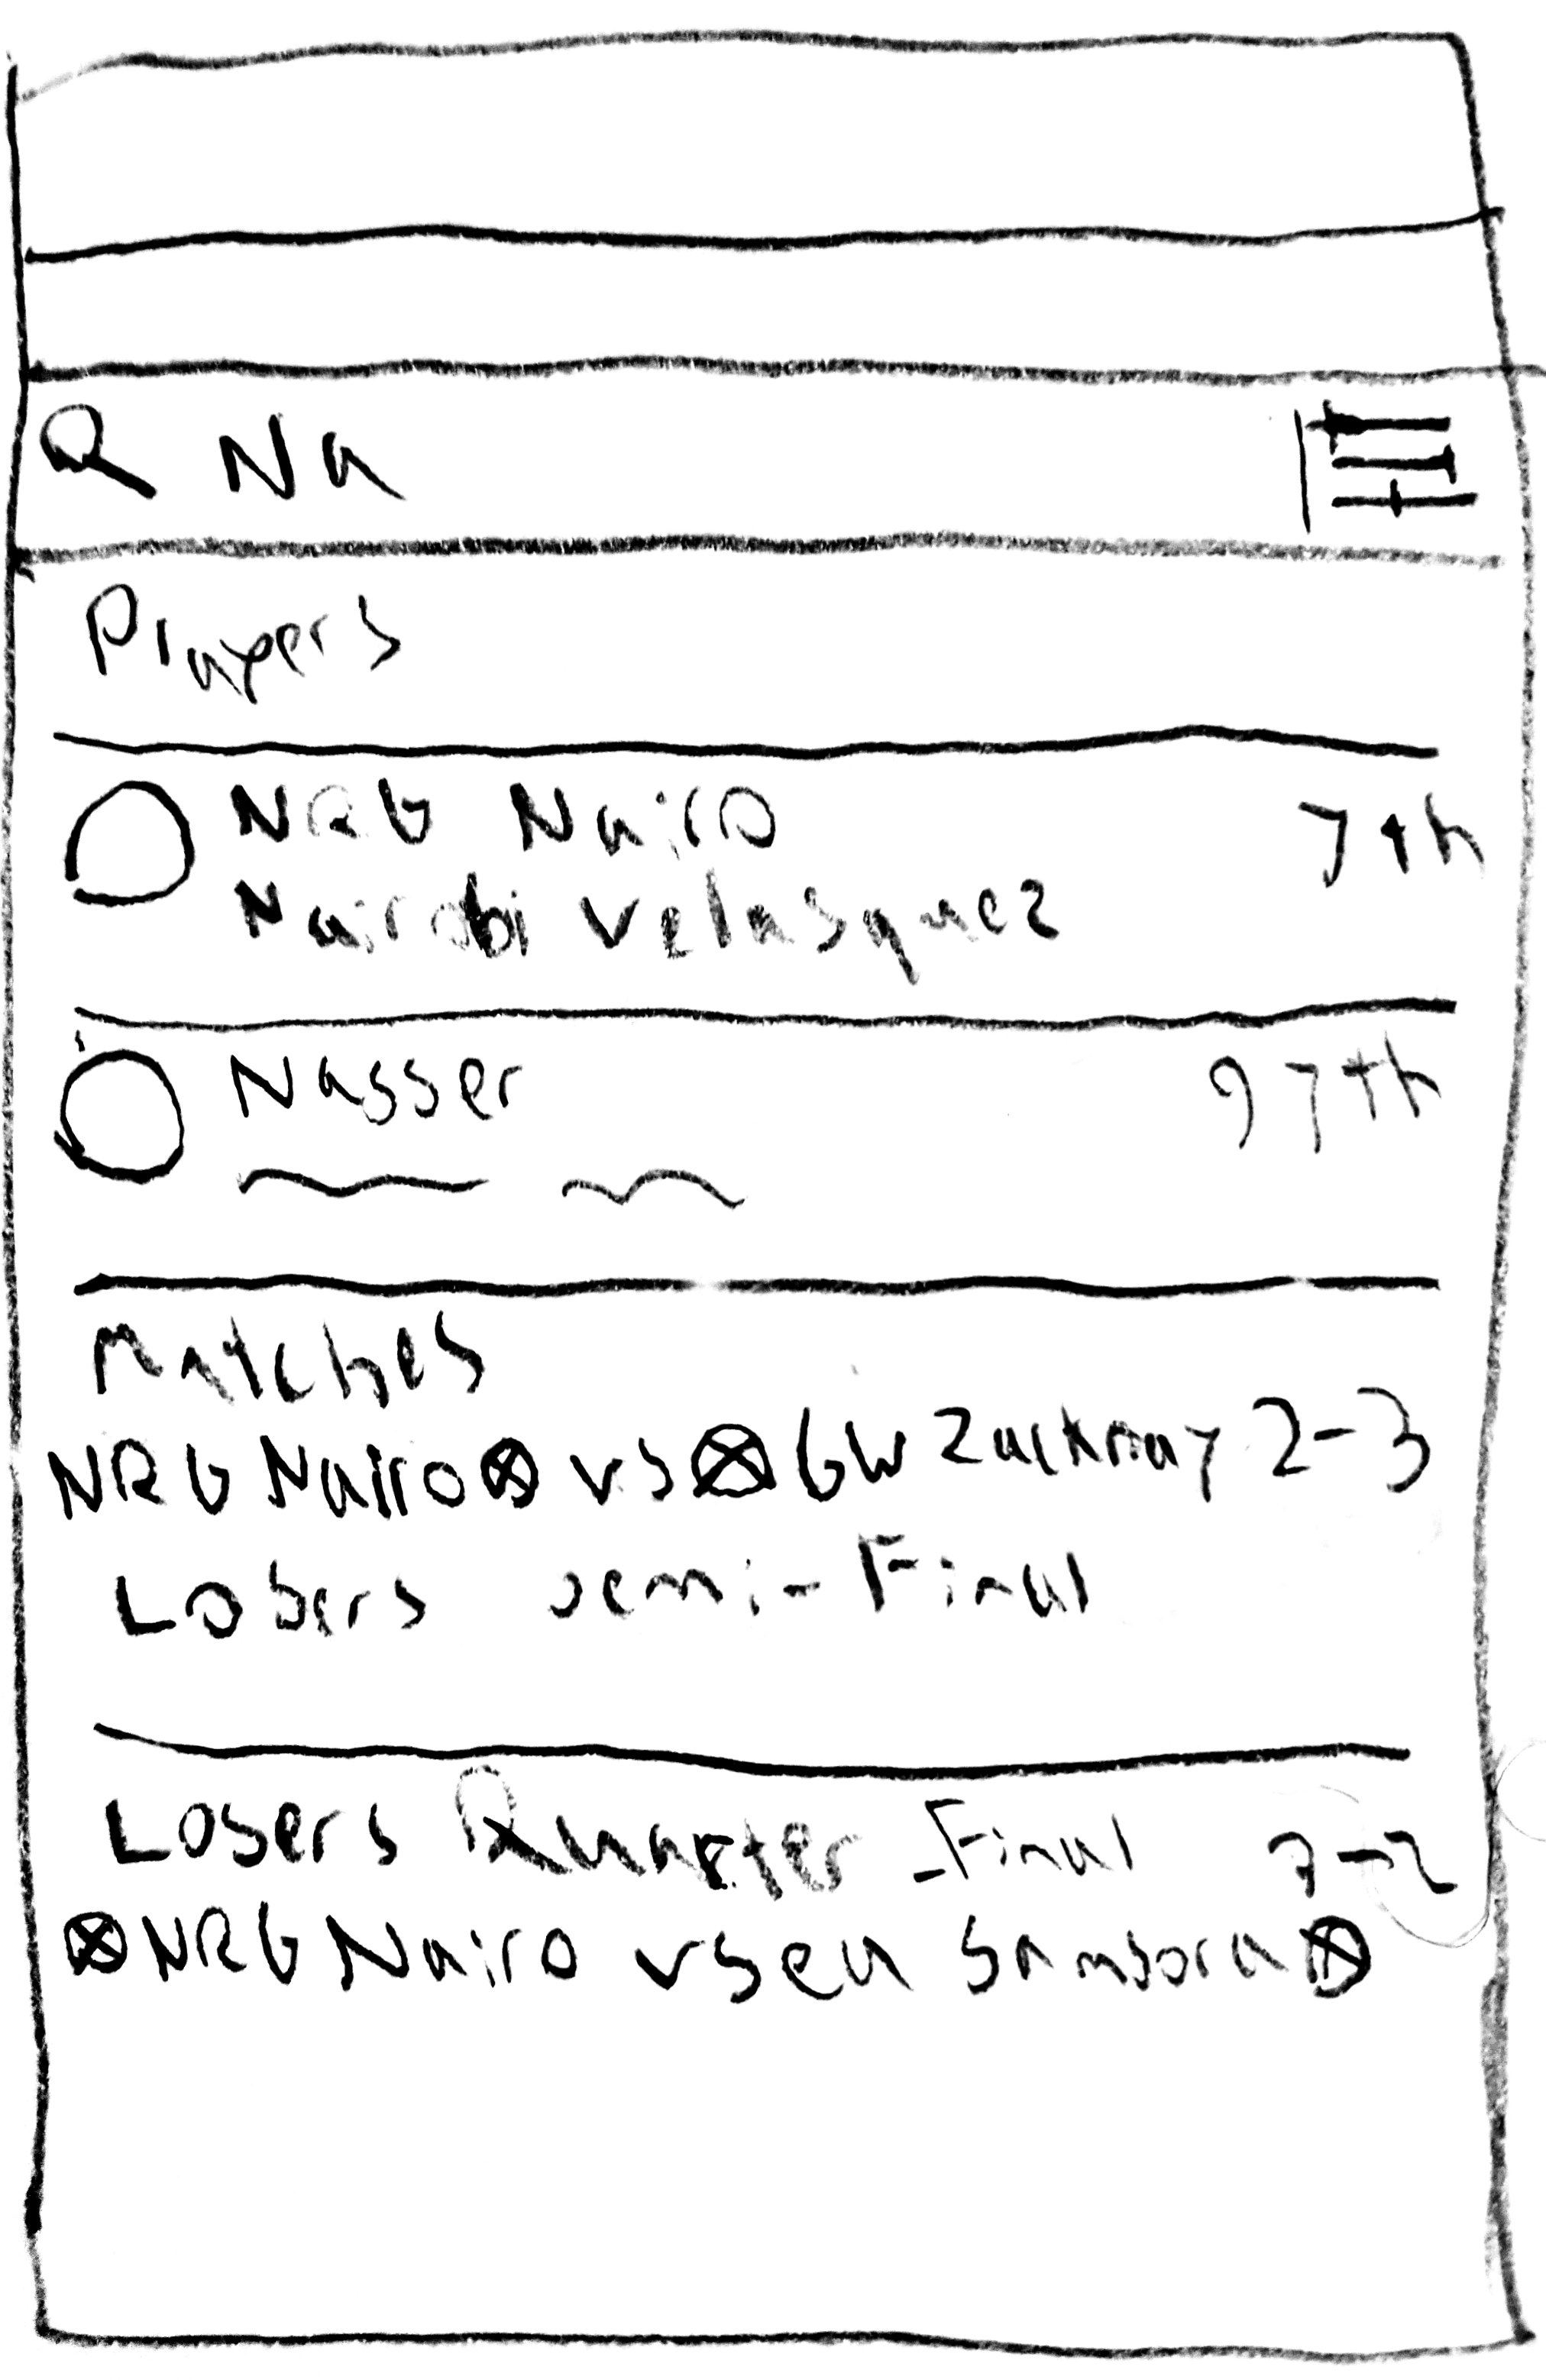 Na
Players
NRG Nairo 7th
Nairobi Velasquez
Nasser 97th
Matches
NRG Nairo vs GW Zackray 2-3
Losers semi-Final
Losers Quarter-Final 3-2
NRG Nairo vs en Samsora